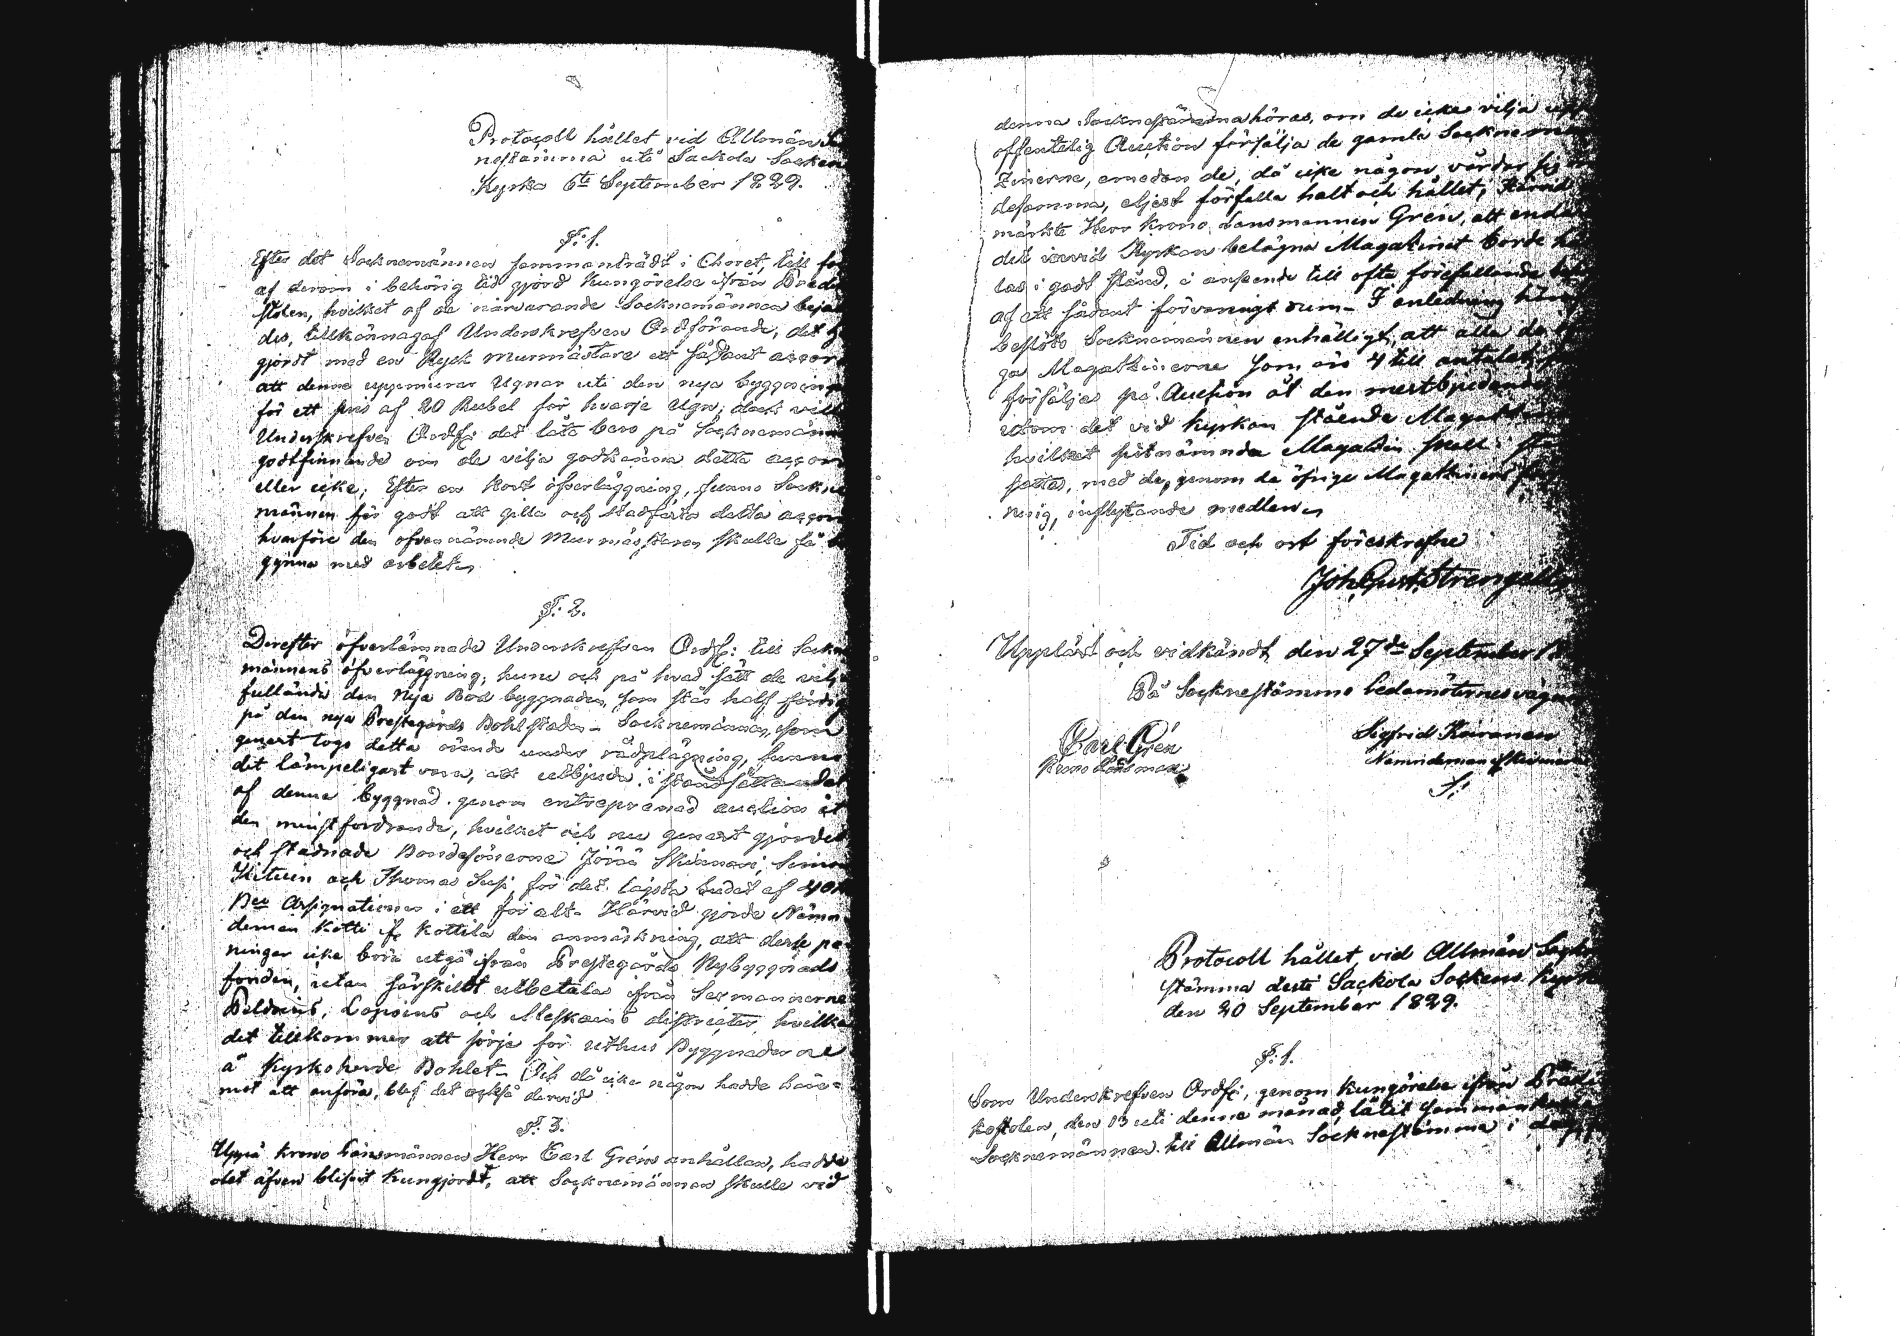 Protocoll hållet vid Allmän
nestämma uti Sackola Socken
Kyrka 6te September 1829.
§: 1.
Efter det Socknemännen sammanträdt i Choret, till
af derom i behörig tid gjord Kungörelse ifrån Predi
stolen, hvilket af de närvarande Socknemännen beja
des, tillkännagaf Underskrefven Ordförande, det
gjordt med en Rysk murmästare ett sådant accor
att denne uppmurar Ugnar uti den nya byggningen
för ett pris af 20 Rubel för hvarje Ugn; dock vill
Underskrefven Ordf: det låta bero på Socknemän
godtfinnande om de vilja godkänna detta accor
eller icke; Efter en kort öfverläggning, funno Sockne
männen för godt att gilla och stadfästa detta accor
hvarföre den ofvannämnde Murmästaren skulle få
gynna med arbetet.
§: 2.
Derefter öfverlämnade Underskrefven Ordf: till Sockne
männens öfverläggning, huru och på hvad sätt de vilja
fullända den Nya Bod byggnaden, som står half färdig
på den nya Prestegårds Bohlstaden - Socknemännen, som
genast togo detta ärende under rådplägning, funno
det lämpeligast vara, att utbjuda iståndsättandet
af denna byggnad genom entreprenad auction åt
den minstfordrande, hvilket och nu genast gjordes
och stadnade Bondesönerne Jöran Skinnari, Simon
Hituin och Thomas Susi för det lägsta budet af 40
Bco Assignationer i ett för alt. Härvid gjorde Nämn
deman Kotti if Kottila den anmärkning, att desse pe
ningar icke böra utgå ifrån Prestegårds Nybyggnads
fonden, utan särskillt utbetalas ifrån Sexmännerne
och Meskains districter, hvilka
det tillkommer att sörja för uthus Byggnaderne
å Kyrkoherde Bohlet - Och då icke någon hadde häre=
mot att anföra, blef det också dervid
§: 3.
Uppå krono Länsmannen Herr Carl Gréns anhållan, hadde
det äfven blifvit kungjordt, att Socknemännen skulle vid
denna Socknestämma höras, om de icke vilja
offentelig Auction försälja de gamla Socknema
zinerne, emedan de, då icke någon vårdar sig
desamma, eljest förfalla halt och hållet; Härvid
märkte Herr Krono Länsmannen Grén, att enda
det invid Kyrkan belägna Magazinet borde
las i godt stånd, i anseende till ofta förefallande
af ett sådant förvaringt rum - I anledning här
beslöts Socknemännen enhälligt, att alla de
ga Magazinerne som äro 4 till antalet,
försäljas på Auction åt den mestbjudande
utom det vid kyrkan stående Magazin
hvilket sistnämnda Magazin skall i
sättas, med de, genom de öfrige Magazinens
ning, inflytande medlen.
Tid och ort föreskrefne
Joh: Gust: Strengell
Uppläst och vidkändt den 27de September 18
På Socknestämmo ledamöternes vägnar
Carl Grén
Krono Länsman
Sigfrid Kaivanen
Nämndeman
Protocoll hållet vid Allmän Sockne
stämma uti Sackola Sockens Kyrka
den 20 September 1829.
§: 1.
Som Underskrefven Ordf:, genom kungörelse ifrån Predi
kostolen, den 13 uti denna månad, låtit sammankalla
Socknemännen till Allmän Socknestämma i dag